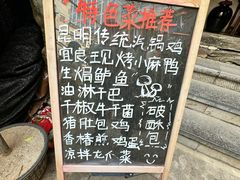 特色菜推荐
昆明传统汽锅鸡
宜良现烤小麻鸭
生焗鲈鱼
油淋干巴
千椒牛干菌
猪肚包鸡
香椿煎鸡蛋
凉拌龙爪菜
破酥包